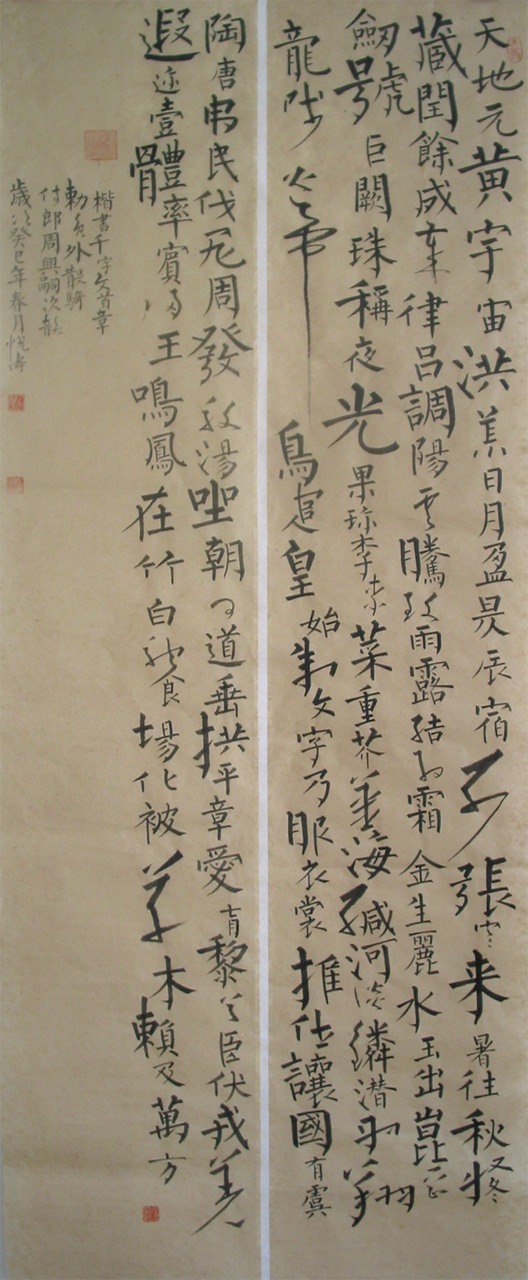 天地元黃宇宙洪荒日月盈昃辰宿列張寒来暑往秋收冬
藏閏餘成歲律呂調陽雲騰致雨露結為霜金生麗水玉出崑岡
劍號巨闕珠稱夜光果珍李柰菜重芥薑海鹹河淡鱗潛羽翔
龍師火帝鳥官皇始制文字乃服衣裳推位讓國有虞
陶唐弔民伐罪周發殷湯坐朝問道垂拱平章愛育黎首臣伏戎羌
遐迩壹體率賓歸王鳴鳳在竹白駒食場化被草木賴及萬方
楷書千字文首章
勅員外散騎
侍郎周興嗣次韻
歲次癸巳年春月悅濤